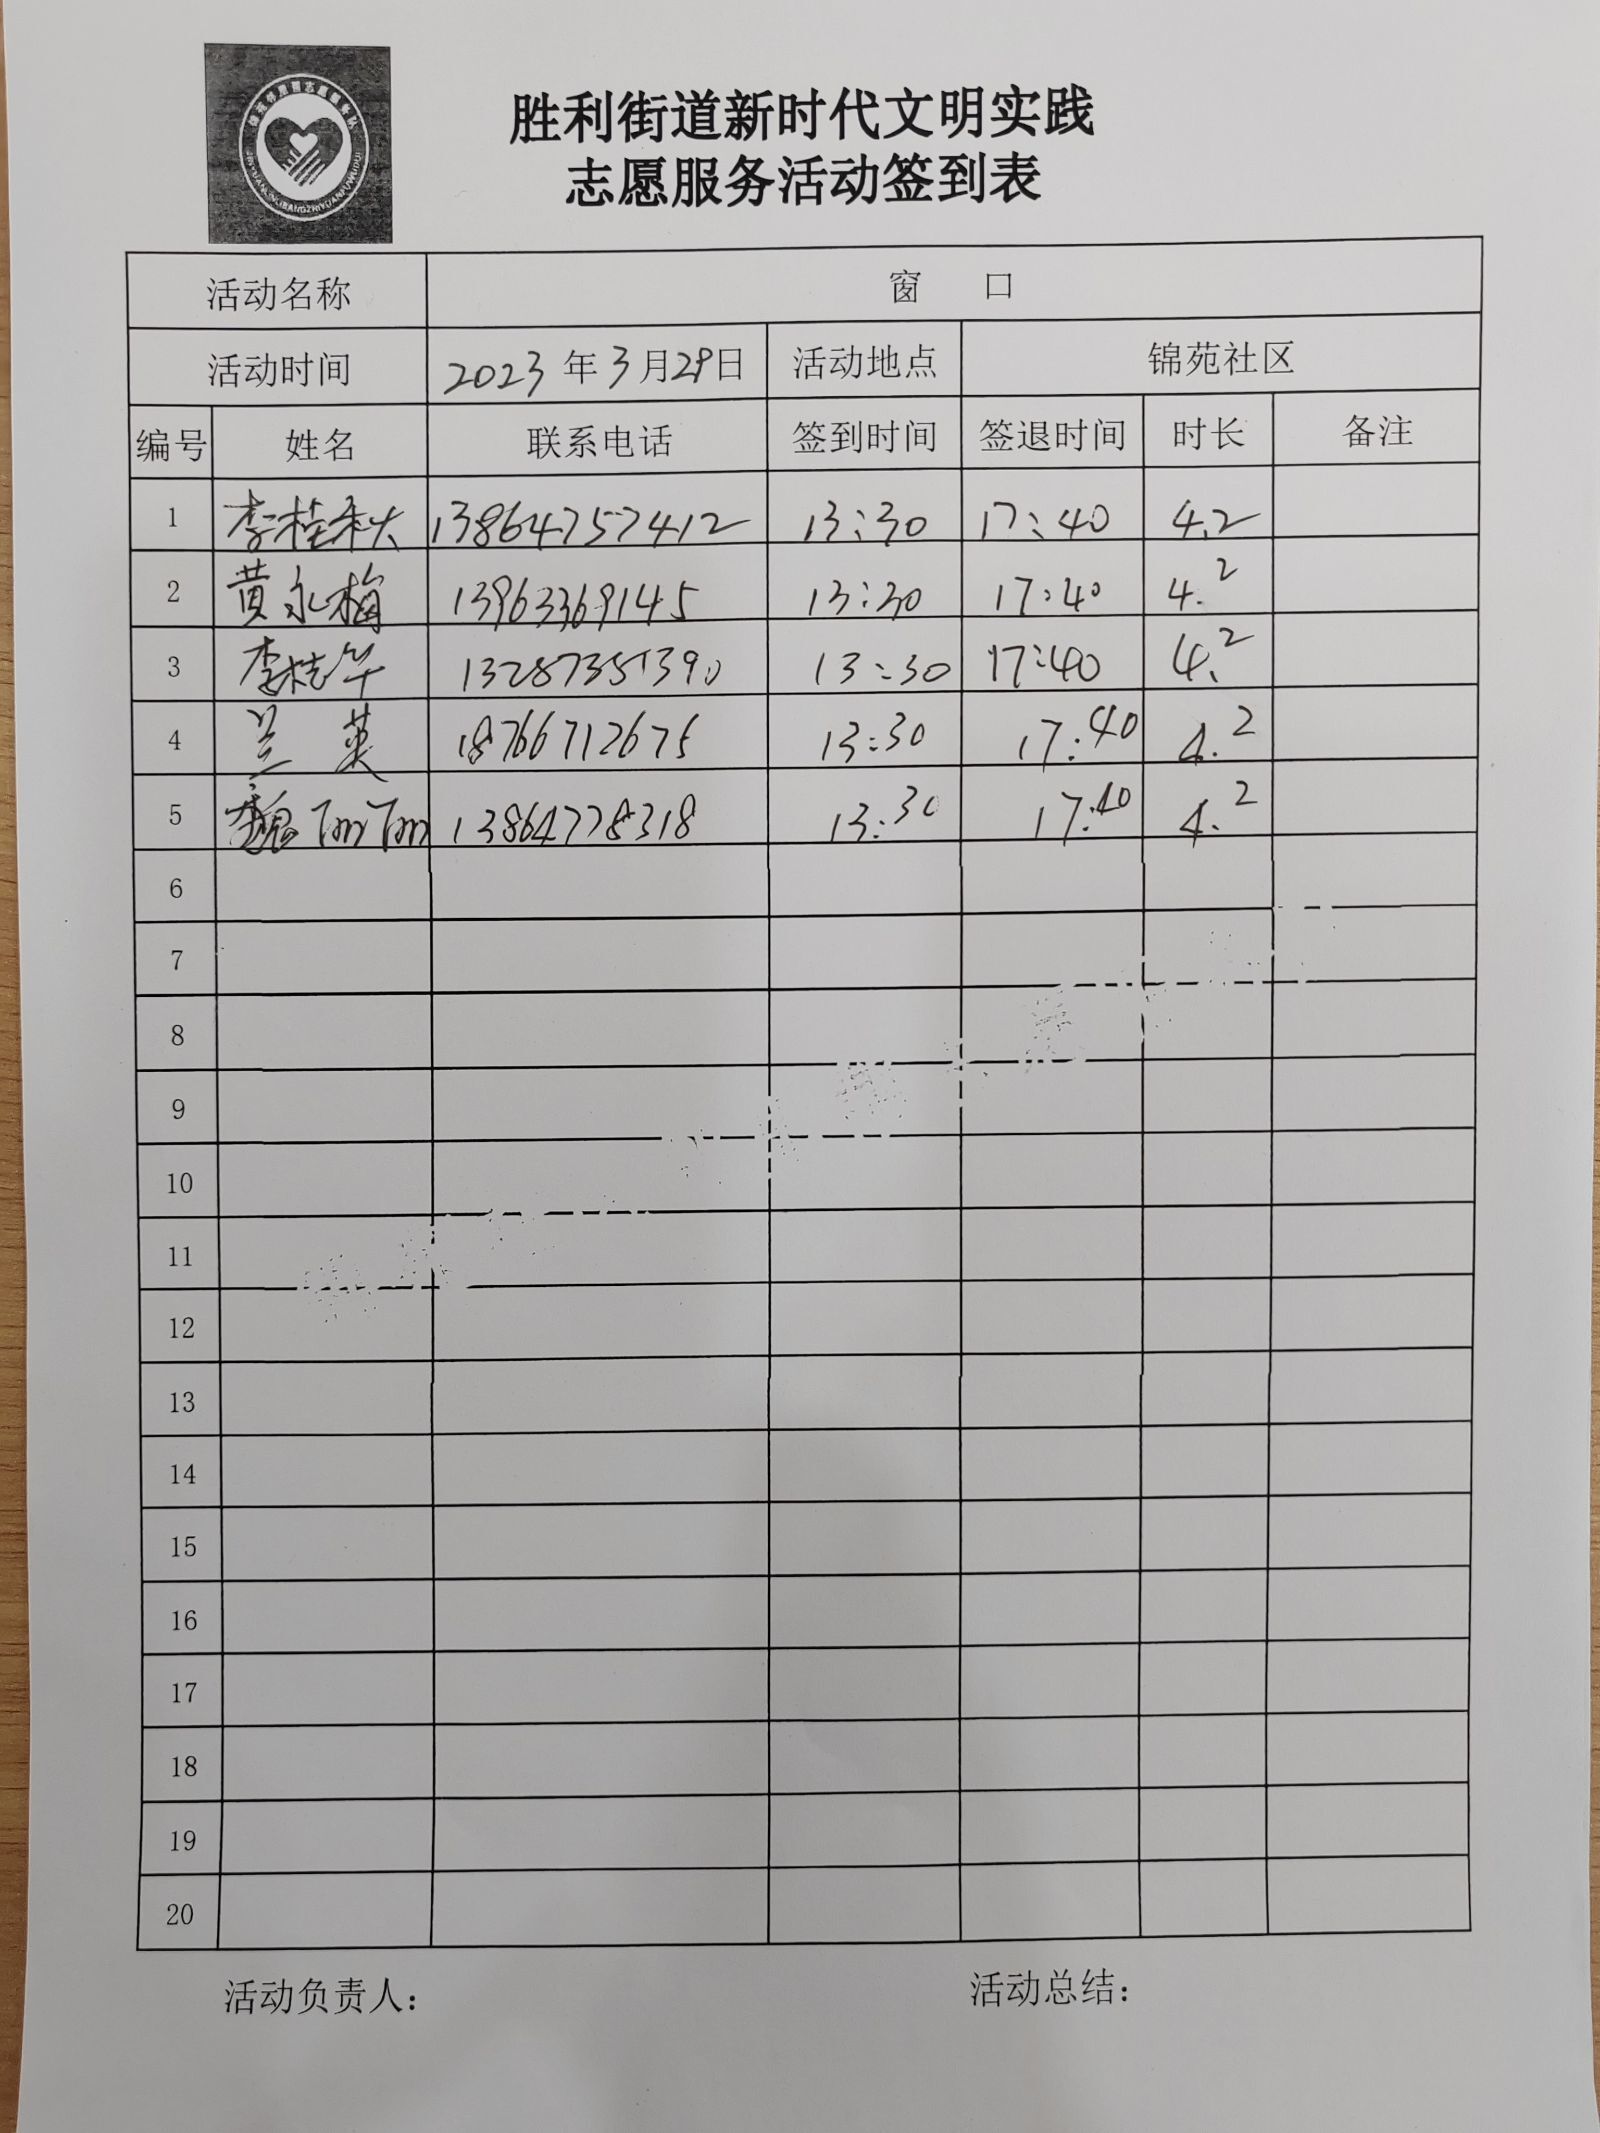 胜利街道新时代文明实践
志愿服务活动签到表
活动名称 窗 口
活动时间 2023年3月29日 活动地点 锦苑社区
编号 姓名 联系电话 签到时间 签退时间 时长 备注
1 李桂秋 13864757412 13:30 17:40 4.2
2 黄永梅 13963369145 13:30 17:40 4.2
3 李桂华 13287351390 13:30 17:40 4.2
4 兰英 18766712675 13:30 17:40 4.2
5 魏 13864778318 13:30 17:40 4.2
6
7
8
9
10
11
12
13
14
15
16
17
18
19
20
活动负责人: 活动总结: